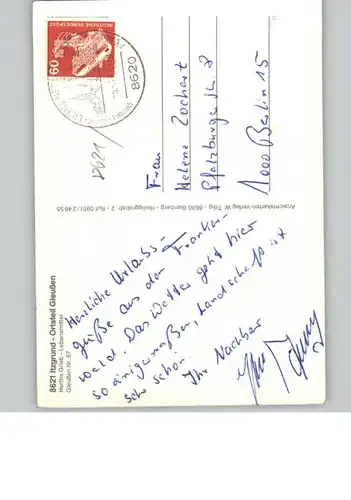 8621 Itzgrund - Ortsteil Gleußen
Hertha Grieb - Lebensmittel
Gleußen Nr. 67
Herzliche Urlaubs-
grüße aus dem Franken-
wald. Das Wetter geht hier
so einigermaßen, Landschaft ist
sehr schön.
Ihr Nachbar
Ansichtskarten-Verlag W. Tillig - 8600 Bamberg - Heiliggrabstr. 2 - Ruf 0951/2 46 55
60
DEUTSCHE BUNDESPOST
8620
8621
Frau
Helene Zochert
Pfalzburger
1000 Berlin 15